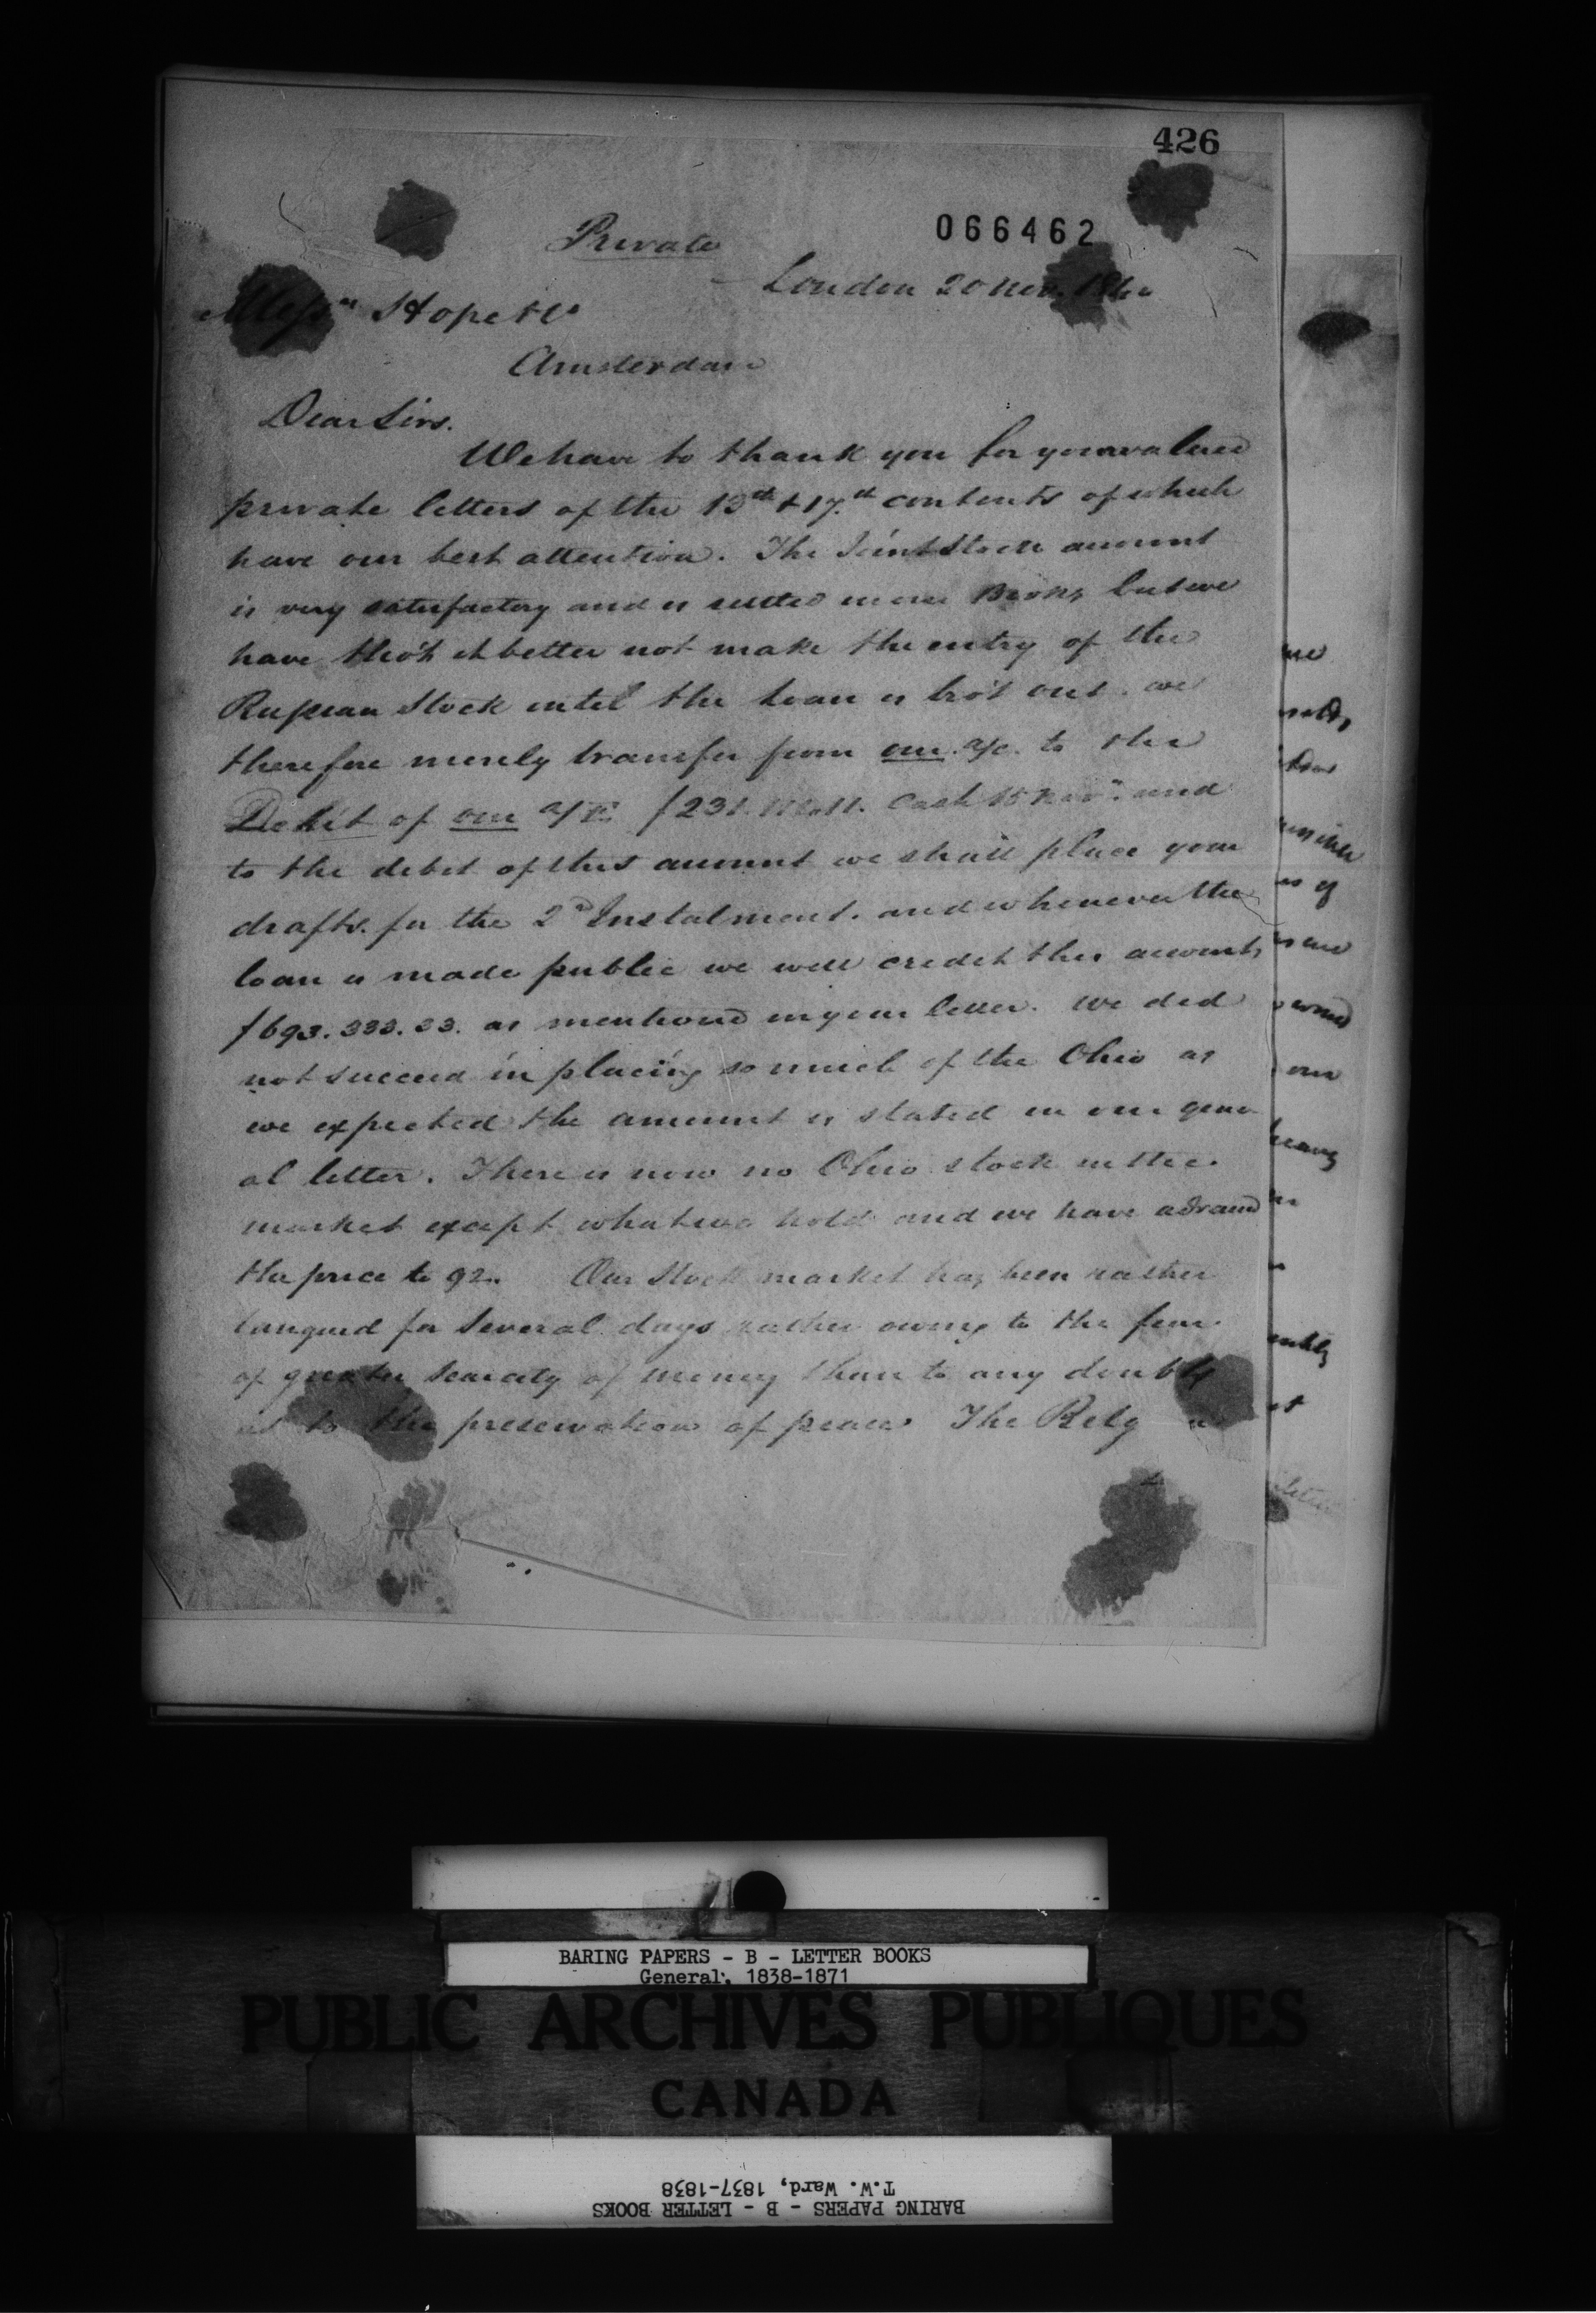 426
066462
Private
London 20 Nov. 1840
Mess.rs Hope & Co
Amsterdam
Dear Sirs.
We have to thank you for your valued
private letters of the 13th & 17.th contents of which
have our best attention. The Joint Stock account
is very satisfactory and is settled in our Books but we
have tho't it better not make the entry of the
Russian Stock until the loan is bro't out. we
therefore merely transfer from our a/c. to the
Debit of our a/c f 231. Cash 15 Nov.r and
to the debit of this account we shall place your
drafts. for the 2d Instalment. and whenever the
loan is made public we will credit this account
f 693.333.33. as mentioned in your letter. We did
not succeed in placing so much of the Ohio as
we expected the amount is stated in our gener
al letter. There is now no Ohio stock in the
market except what we hold and we have advanced
the price to 92.. Our Stock market has been rather
languid for several days rather owing to the fear
of greater scarcity of money than to any doubts
as to the preservation of peace. The Belg
me
our
BARING PAPERS - B - LETTER BOOKS
General, 1838-1871
PUBLIC ARCHIVES PUBLIQUES
CANADA
T.W. Ward, 1837-1838
BARING PAPERS - B - LETTER BOOKS